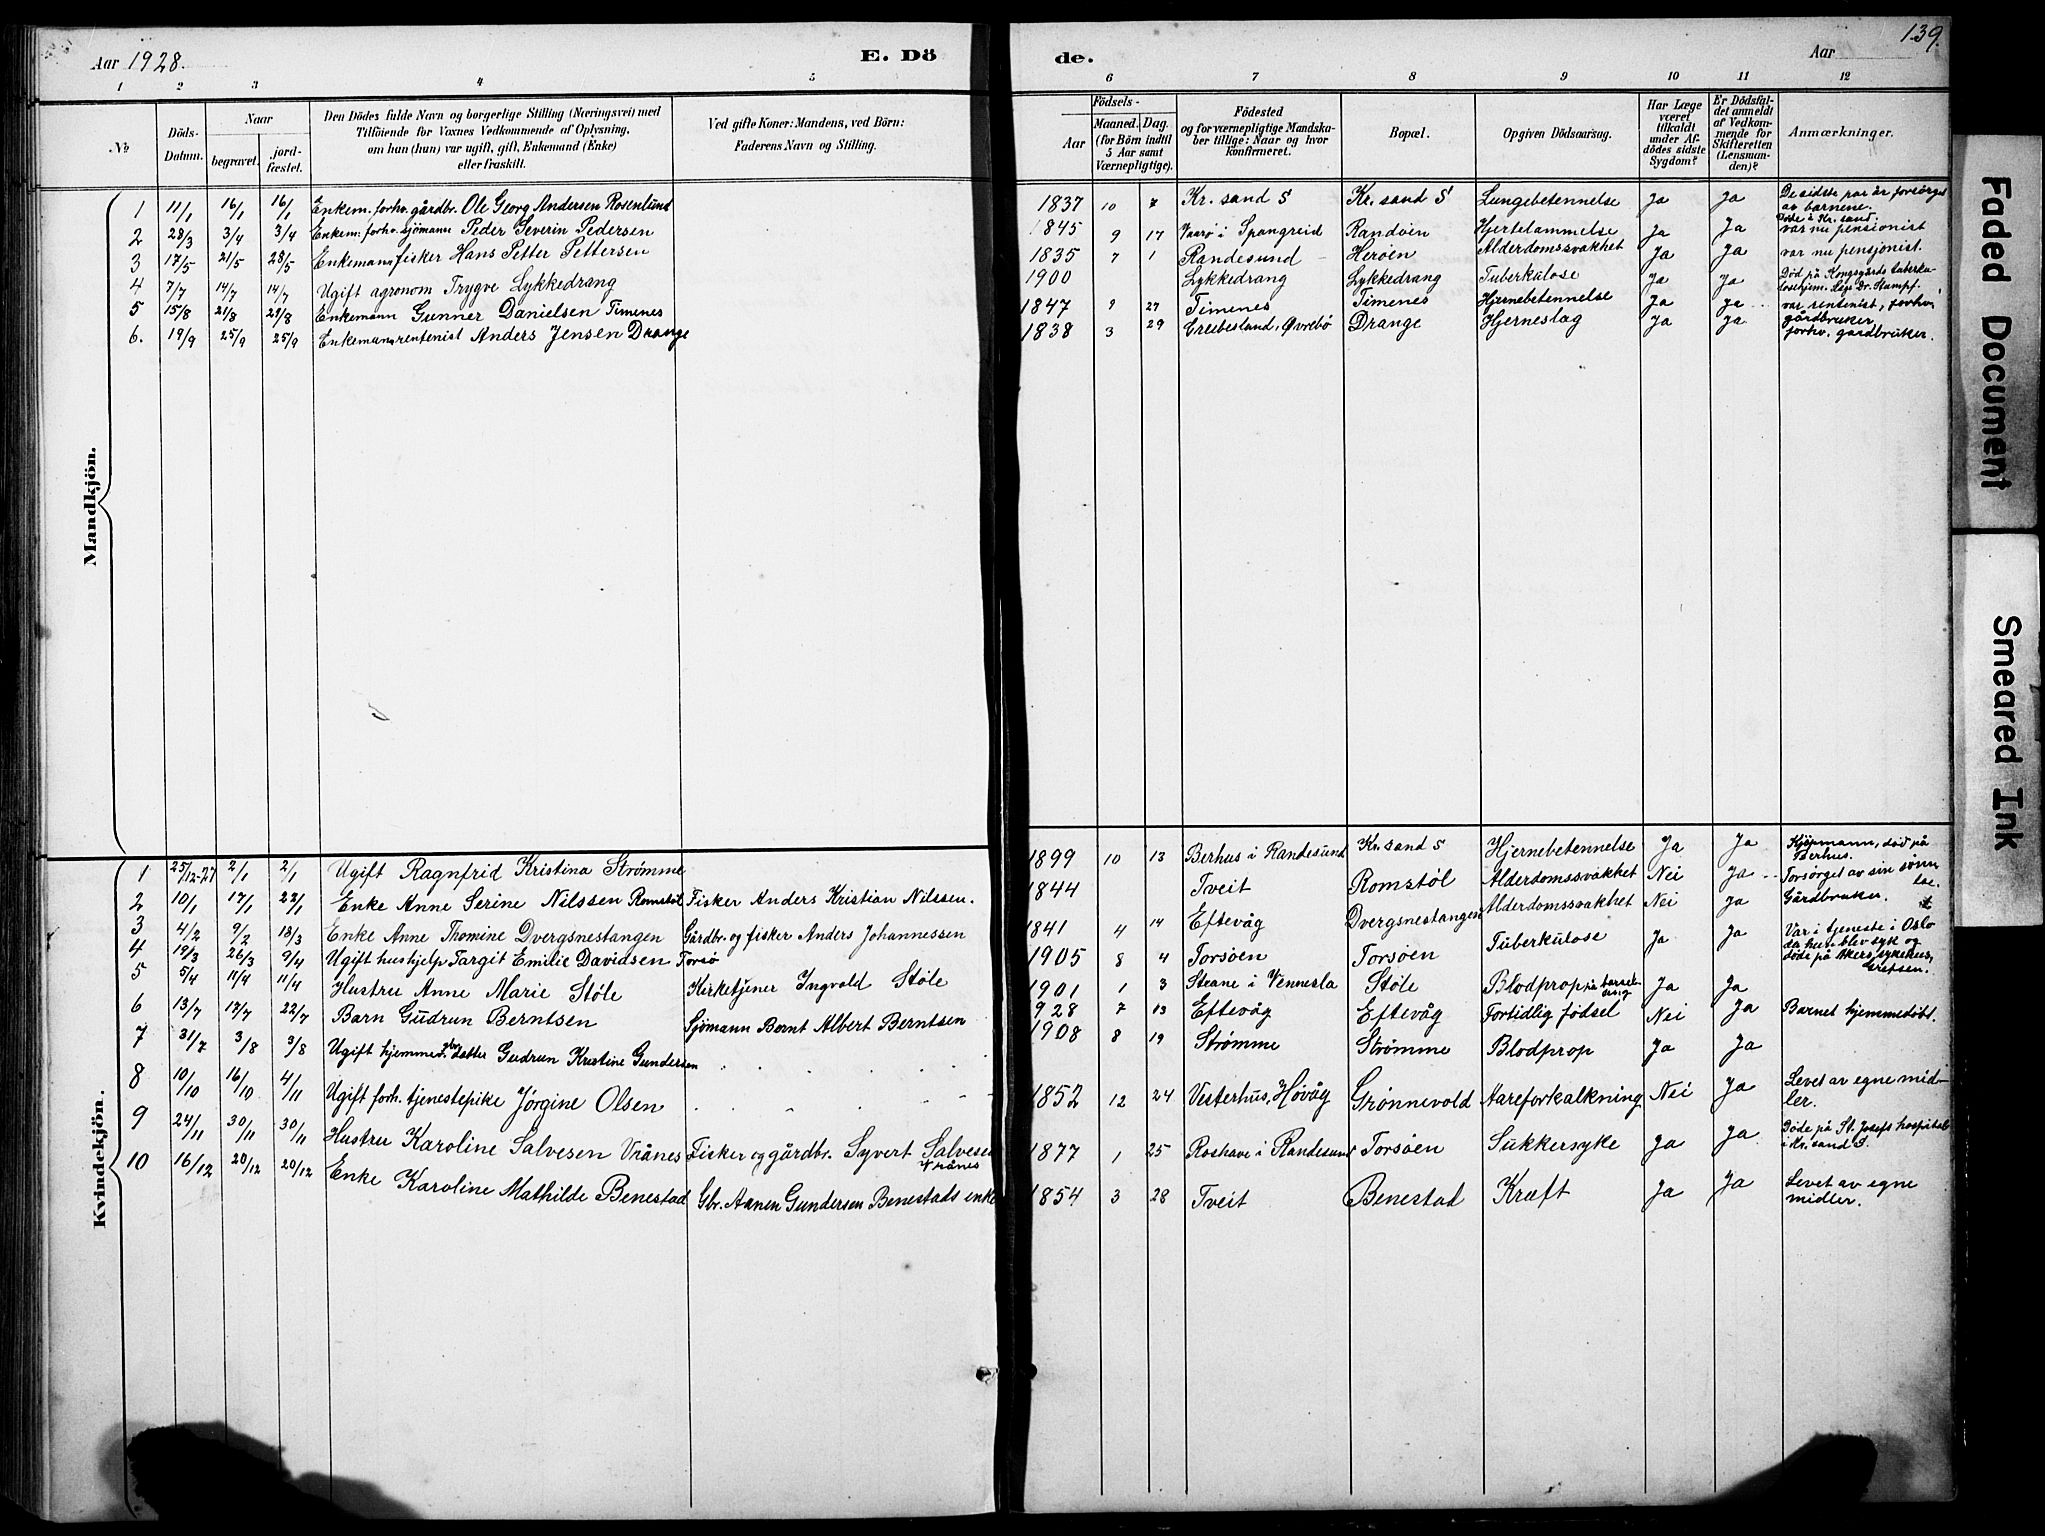 Aar 1928. E. Dö de. Aar 139.
1 2 3 4 5 6 7 8 9 10 11 12
No
Döds-Datum.
Naar
begravet.
jord-fæstet.
Den Dödes fulde Navn og borgerlige Stilling (Næringsvei) med
Tilföiende for Voxnes Vedkommende af Oplysning,
om han (hun) var ugift, gift, Enkemand (Enke)
eller fraskilt.
Ved gifte Koner: Mandens, ved Börn:
Faderens Navn og Stilling.
Födsels-
Aar
Maaned. Dag.
(for Börn indtil
5 Aar samt
Værnepligtige).
Födested
og for værnepligtige Mandska-
ber tillige: Naar og hvor
konfirmeret.
Bopæl.
Opgiven Dödsaarsag.
Har Læge
været
tilkaldt
under Af-
dödes sidste
Sygdom?
Er Dödsfal-
det anmeldt
af Vedkom-
mende for
Skifteretten
(Lensman-
den)?
Anmærkninger.
Mandkjön.
1 11/1 16/1 16/1 Enkem. forhv. gårdbr. Ole Georg Andersen Rosenlund 1837 10 7 Kr. sand S Kr. sand S Lungebetennelse Ja Ja De sidste par år forsörget
av barnene.
Døde i Kr. sand.
2 28/3 3/4 3/4 Enkem. forhv. sjömann Peder Severin Pedersen 1845 9 17 Vaarø i Spangreid Randøen Hjertelammelse Ja Ja var nu pensionist
3 17/5 21/5 28/5 Enkemann fisker Hans Petter Pettersen 1835 7 1 Randesund Herøen Alderdomssvakhet Ja Ja var nu pensjonist.
4 7/7 14/7 14/7 Ugift agronom Trygve Lykkedrang 1900 Lykkedrang Lykkedrang Tuberkulose Ja Ja Död på Kongsgårds tuberku-
losehjem. Lege Dr. Stumpf.
5 15/8 21/8 21/8 Enkemann Gunner Danielsen Timenes 1847 9 27 Timenes Timenes Hjernebetennelse Ja Ja var rentenist, forhv.
gårdbruker
6. 19/9 25/9 25/9 Enkemann rentenist Anders Jensen Drange 1838 3 29 Greibesland, Øvrebø Drange Hjerneslag Ja Ja forhv. gårdbruker.
Kvindekjön.
1 25/12-27 2/1 2/1 Ugift Ragnfrid Kristina Strømme 1899 10 13 Berhus i Randesund Kr. sand S Hjernebetennelse Ja Ja Kjöpmann, död på
Berhus.
2 10/1 17/1 22/1 Enke Anne Serine Nilssen Romstøl Fisker Anders Kristian Nilssen. 1844 Tveit Romstøl Alderdomssvakhet Nei Ja Forsørget av sin sønn
3 4/2 9/2 18/3 Enke Anne Thomine Dvergsnestangen Gårdbr. og fisker Anders Johannessen 1841 4 14 Eftevåg Dvergsnestangen Alderdomssvakhet Nei Ja Gårdbruker.
4 19/3 26/3 9/4 Ugift hushjelp Targit Emilie Davidsen Torsø 1905 8 4 Torsøen Torsøen Tuberkulose Ja Ja Var i tjeneste i Oslo
da hun blev syk og
döde på Akers sykehus,
Grefsen.
5 5/4 11/4 11/4 Hustru Anne Marie Støle Kirketjener Ingvald Støle 1901 1 3 Strane i Vennesla Støle Blodprop på barsel-
seng Ja Ja
6 13/7 17/7 22/7 Barn Gudrun Berntsen Sjömann Bernt Albert Berntsen 928 7 13 Eftevåg Eftevåg Fortidlig födsel Nei Ja Barnet hjemmedöbt.
7 31/7 3/8 3/8 Ugift hjemmev. datter Gudrun Kristine Gundersen 1908 8 19 Strømme Strømme Blodprop Ja Ja
8 10/10 16/10 4/11 Ugift forh. tjenestepike Jørgine Olsen 1852 12 24 Vesterhus, Høvåg Grønnevold Aareforkalkning Nei Ja Levet av egne mid-
ler.
9 24/11 30/11 30/11 Hustru Karoline Salvesen Vrånes Fisker og gårdbr. Syvert Salvesen
Vrånes 1877 1 25 Roshave i Randesund Torsøen Sukkersyke Ja Ja Döde på St. Josefs hospital
i Kr. sand S.
10 16/12 20/12 20/12 Enke Karoline Mathilde Benestad Gbr. Aanen Gundersen Benestads enke 1854 3 28 Tveit Benestad Kræft Ja Ja Levet av egne
midler.
Faded Document
Smeared Ink